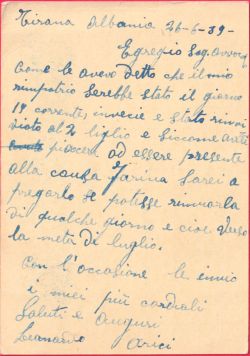 Tirana Albania 26-6-39-
Egregio Sig. Avvoca
Come le avevo detto che il mio
rimpatrio serebbe stato il giorno
19 corrente, invecie è stato rinvi
viato al 2 luglio e siccome avrei
piacere ad essere presente
alla causa Farina sarei a
pregarlo se potesse rinviarla
di qualche giorno e cioè verso
la metà di luglio.
Con l'occasione le invio
i miei più cordiali
Saluti e Auguri
Leonardo Arici